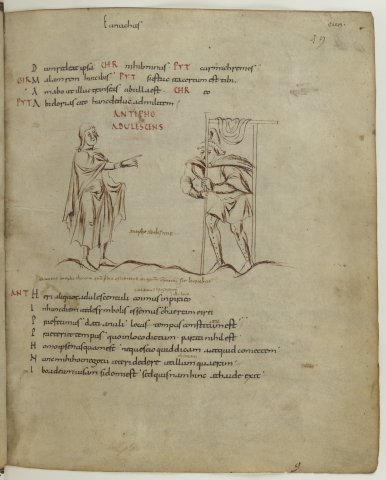 Eunuchus
19
Dum redeat ipsa CHR nihil minus PYT cur mi chremes
CHR Malam rem hinc ibis PYT si istuc ita certum est tibi
Amabo ut illuc transeas ubi illa est CHR eo
PYT Abi dorias cito hunc deduc ad militem
ANTIPHO
ADULESCENS
ANT Heri aliquot adulescentuli coimus in pireo
In hunc diem ut de symbolis essemus chaeream ei rei
Praefecimus dati anuli locus tempus constitutum est
Praeteriit tempus quo in loco dictum parati nihil est
Homo ipse nusquam est neque scio quid dicam aut quid coniectem
Nunc mihi hoc negoti ceteri dedere ut illum quaeram
visam si domi est sed quisnam hinc a thaide exit